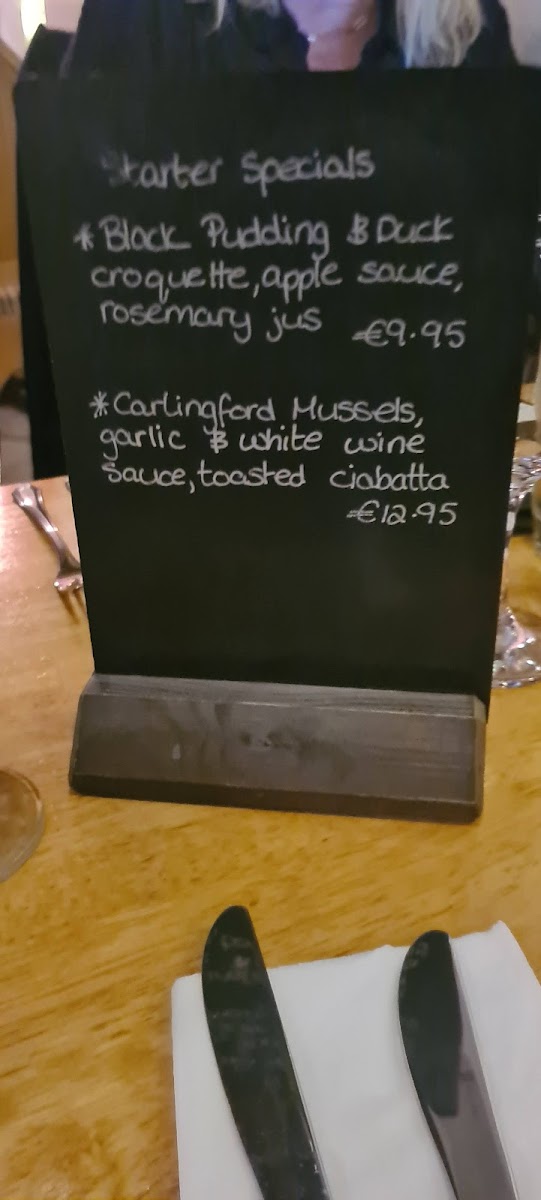 Starter Specials
* Black Pudding & Duck
croquette, apple sauce,
rosemary jus €9.95
* Carlingford Mussels,
garlic & white wine
sauce, toasted ciabatta
€12.95